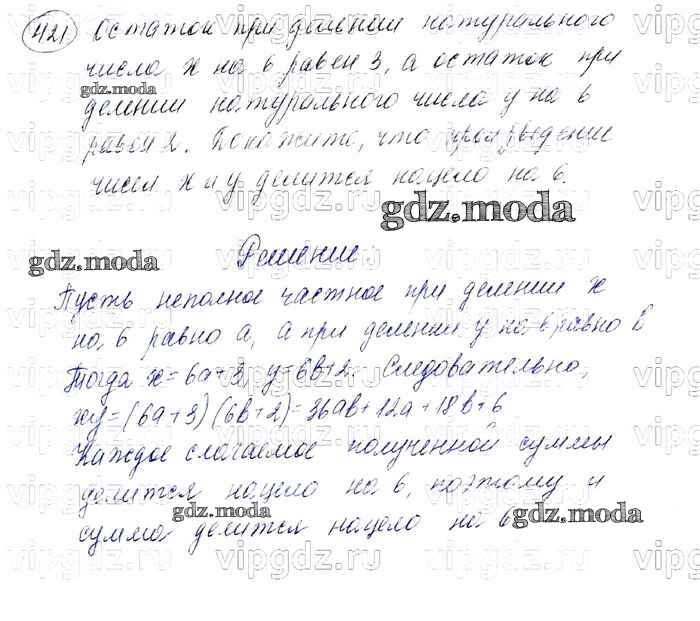 421 Остаток при делении натурального
числа x на 6 равен 3, а остаток при
gdz.moda
делении натурального числа y на 6
равен 2. Докажите, что произведение
чисел x и y делится нацело на 6.
gdz.moda
Решение.
gdz.moda
Пусть неполное частное при делении x
на 6 равно a, а при делении y на 6 равно b
Тогда x=6a+3, y=6b+2. Следовательно,
xy=(6a+3)(6b+2)=36ab+12a+18b+6
Каждое слагаемое полученной суммы
делится нацело на 6, поэтому и
gdz.moda
сумма делится нацело на 6
gdz.moda
vipgdz.ru vipgdz.ru vipgdz.ru vipgdz.ru